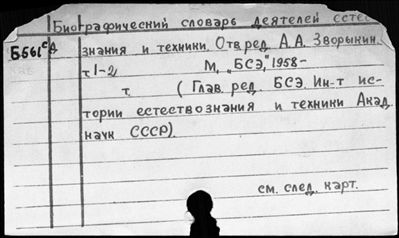 Биографический словарь деятелей естес
Б561 са знания и техники. Отв. ред. А.А. Зворыкин.
т 1-2 М, „БСЭ," 1958-
т. (Глав. ред. БСЭ. Ин-т ис-
тории естествознания и техники Акад.
наук СССР).
см. след. карт.